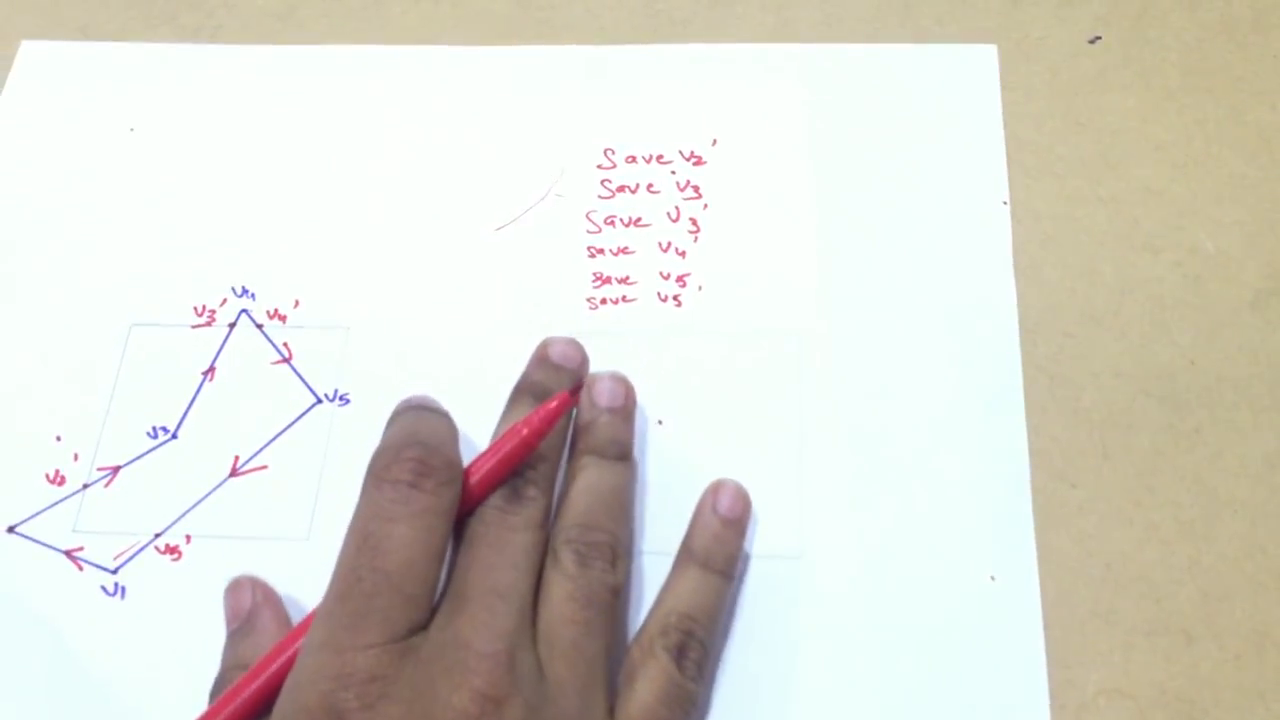 Save v2'
Save v3
Save v3'
save v4'
save v5
save v5'
v4
v3' v4'
v5
v3
v2'
v5'
v1